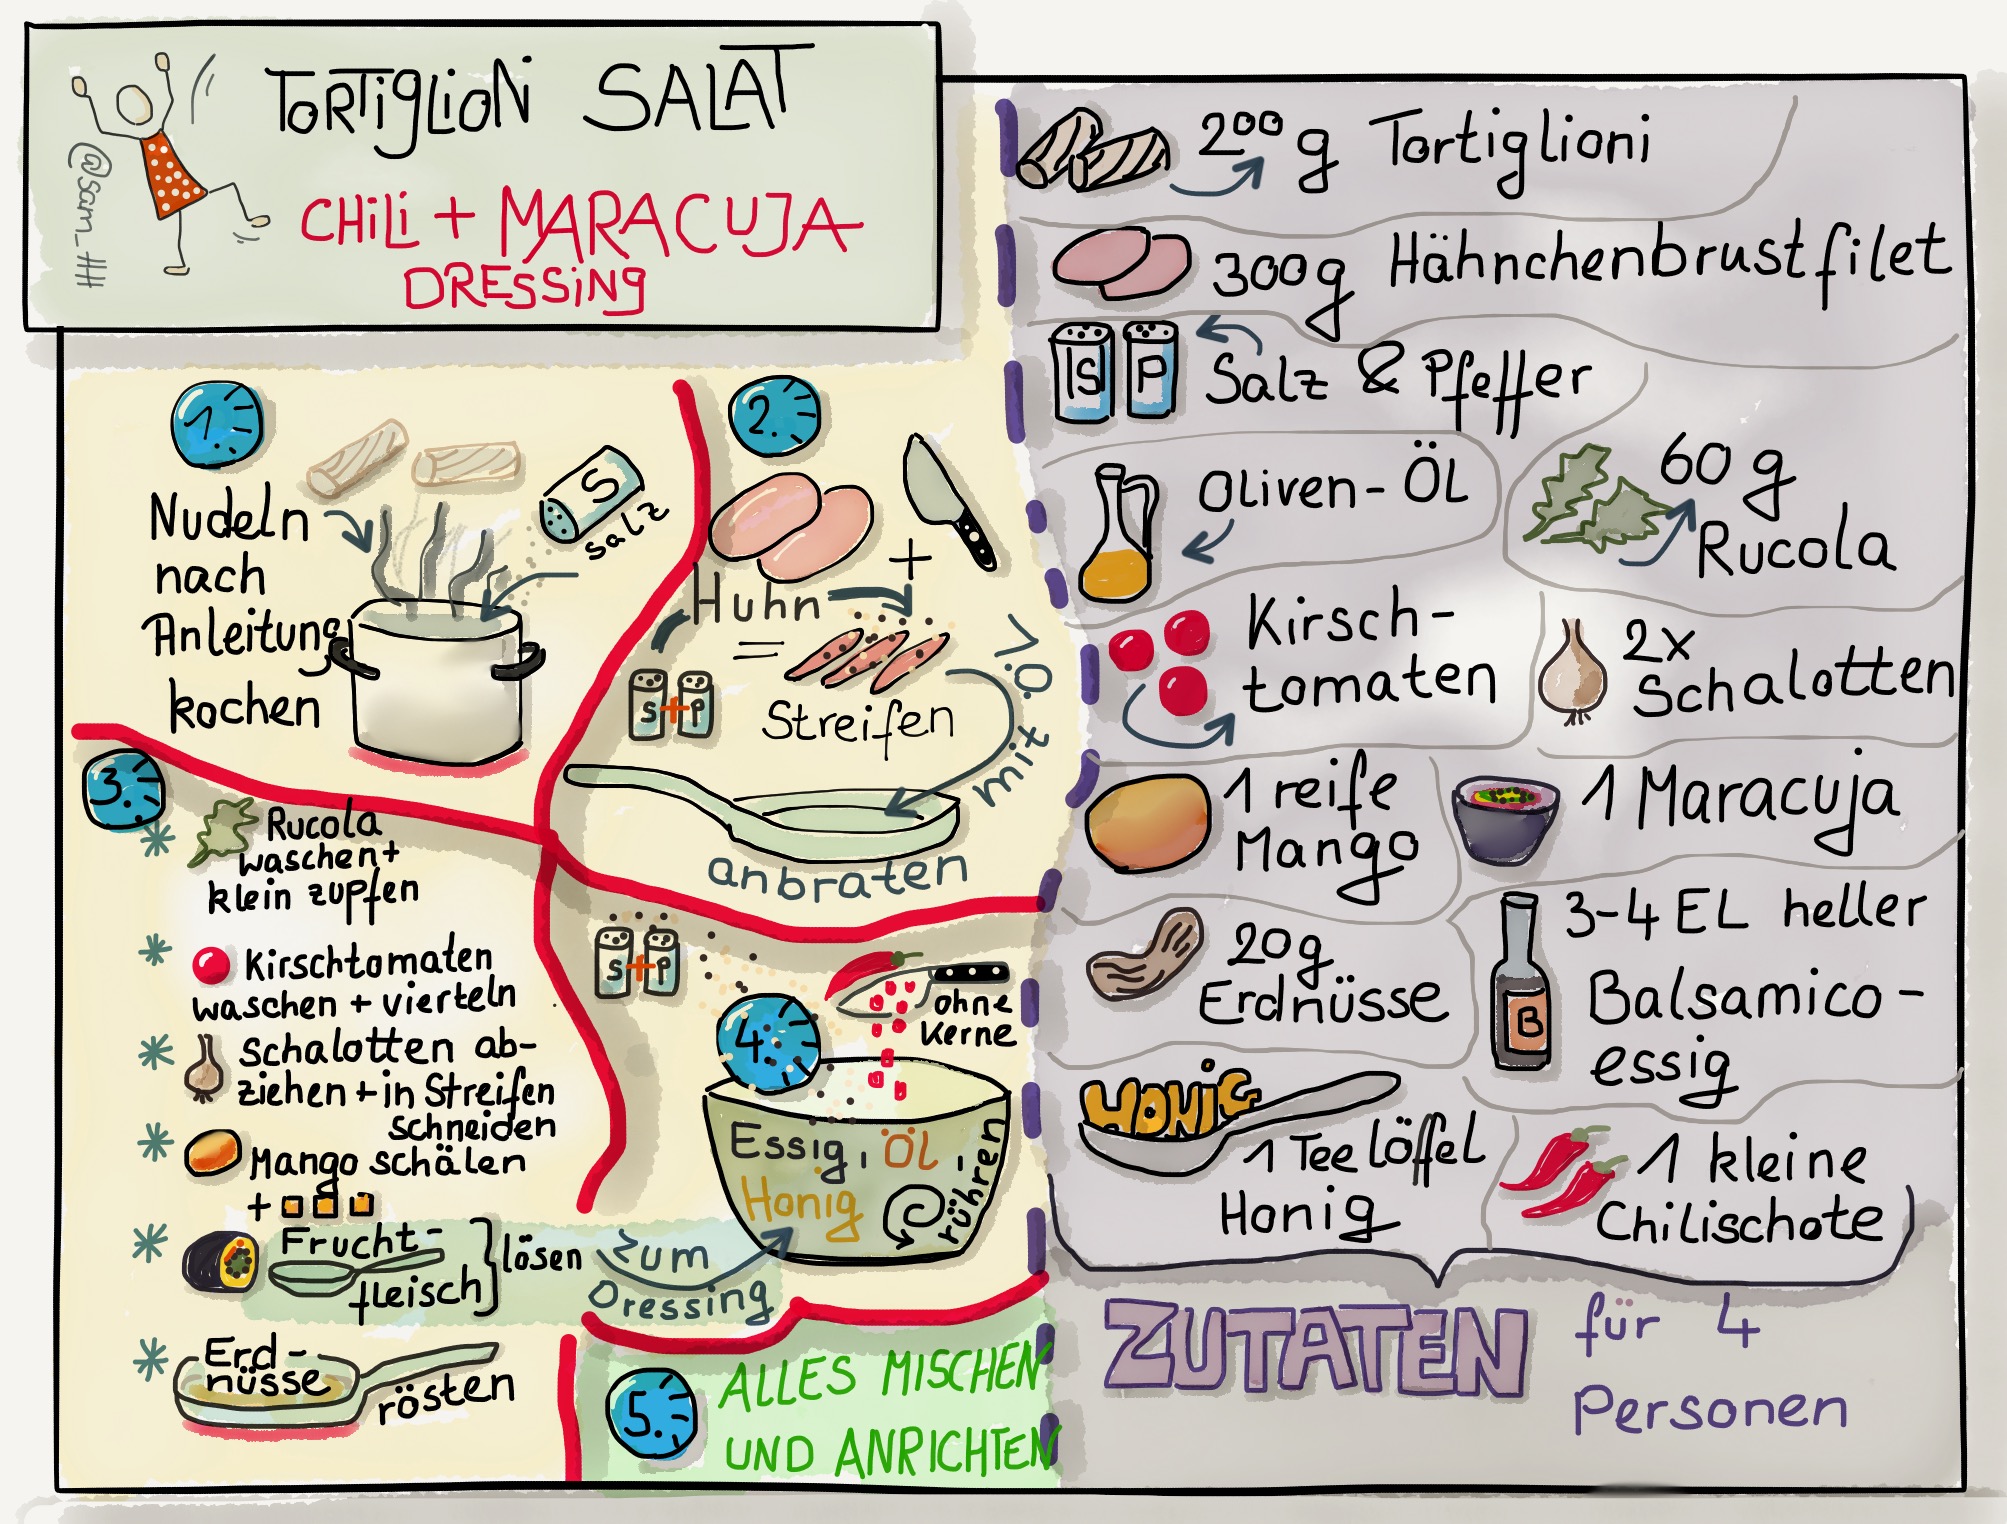 TORTIGLIONI SALAT
CHILI + MARACUJA
DRESSING
@sam_HH
1.
Nudeln
nach
Anleitung
kochen
S
Salz
2.
+
Huhn
=
S+P
Streifen
mit Ö.V.
anbraten
3.
* Rucola
waschen+
klein zupfen
* Kirschtomaten
waschen + vierteln
* Schalotten ab-
ziehen + in Streifen
schneiden
* Mango schälen
+
* Frucht-
fleisch } lösen
zum
Dressing
* Erd-
nüsse
rösten
S+P
4.
ohne
Kerne
Essig, Öl,
Honig
rühren
5.
ALLES MISCHEN
UND ANRICHTEN
200 g Tortiglioni
300g Hähnchenbrustfilet
S P Salz & Pfeffer
Oliven-ÖL
60 g
Rucola
Kirsch-
tomaten
2x
Schalotten
1 reife
Mango
1 Maracuja
20g
Erdnüsse
3-4 EL heller
Balsamico-
essig
B
HONIG
1 Teelöffel
Honig
1 kleine
Chilischote
ZUTATEN für 4
Personen